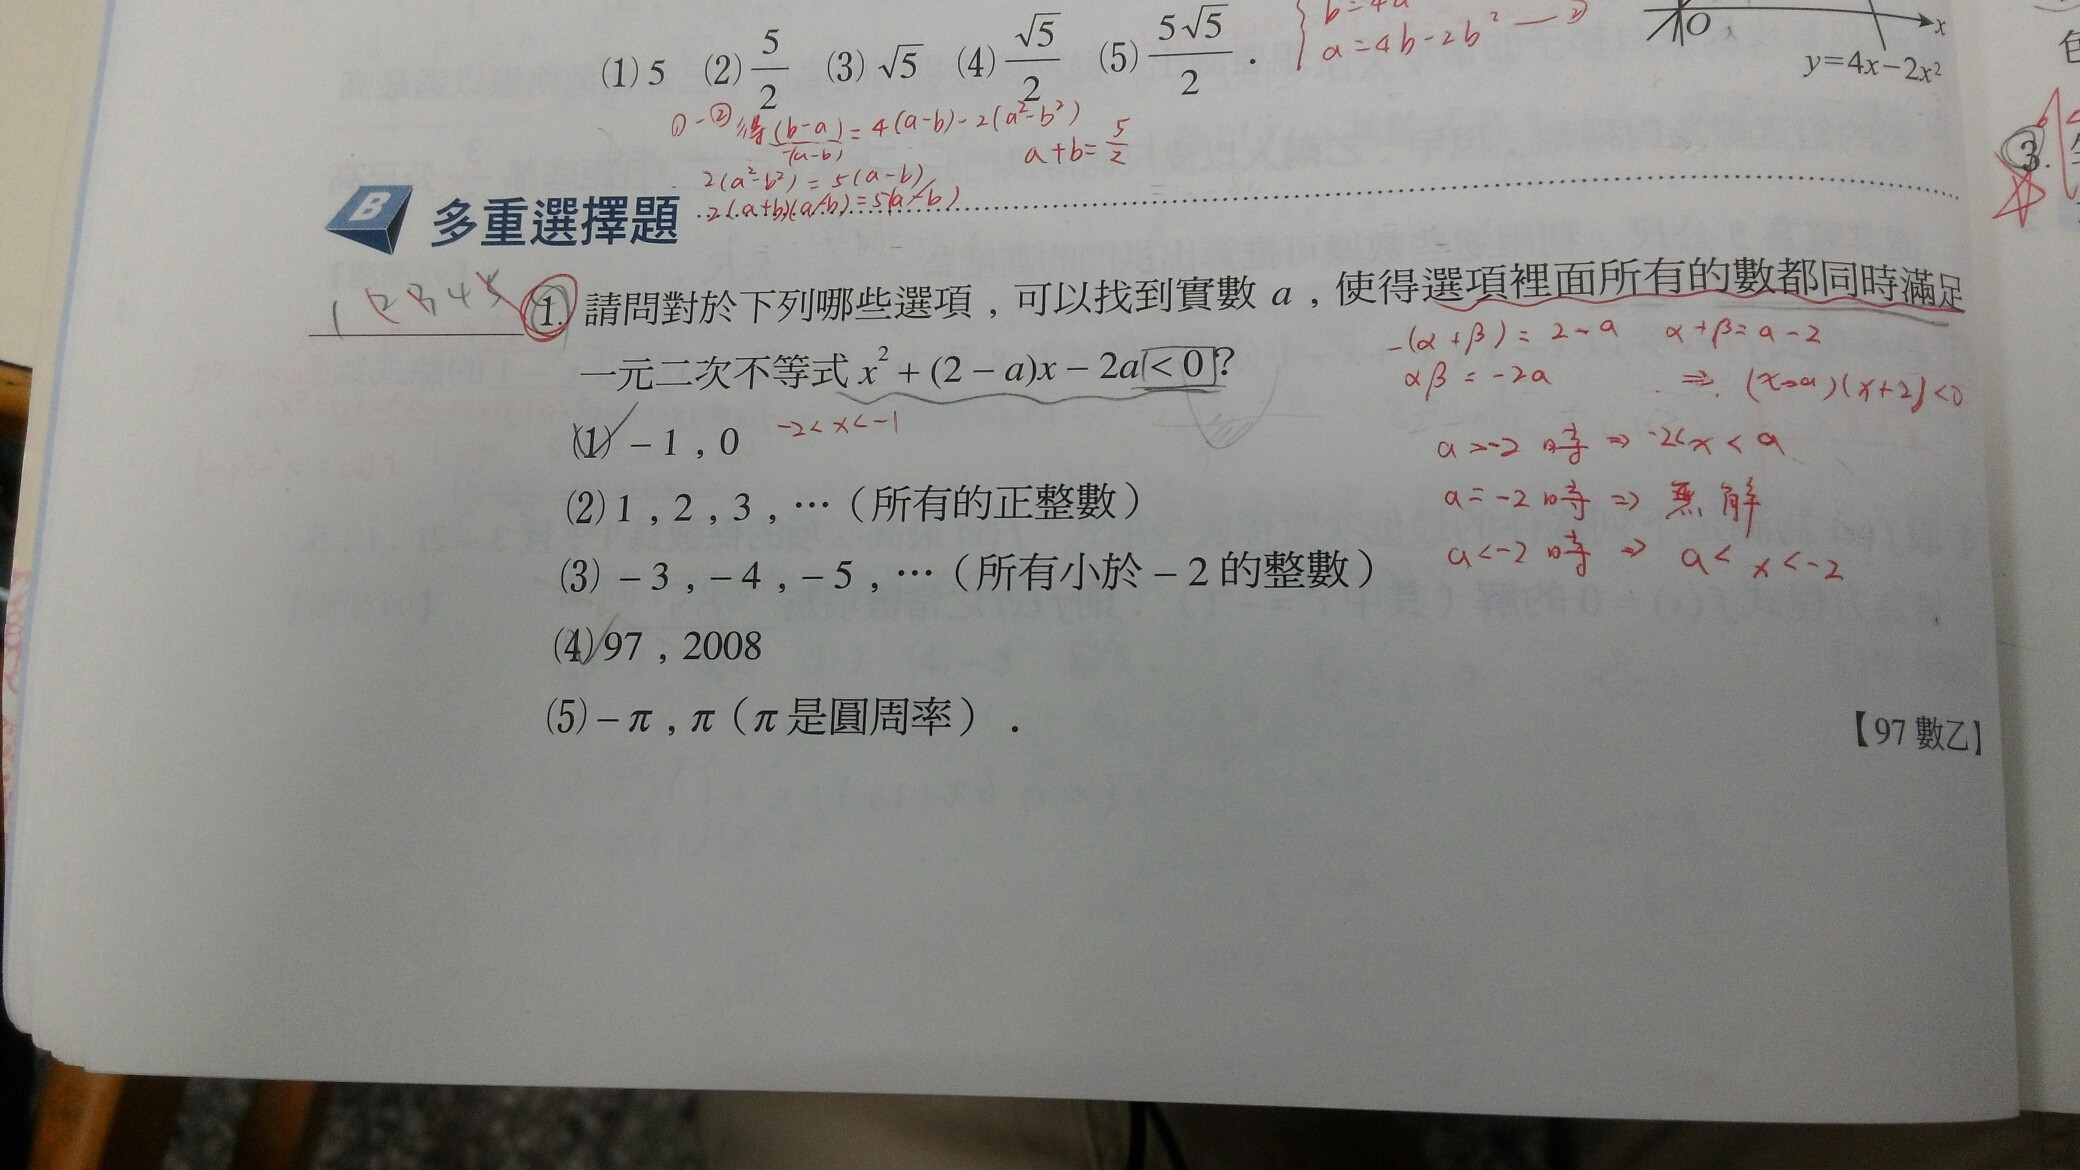 b=4a
a=4b-2b² —②
(1) 5 (2) 5/2 (3) √5 (4) √5/2 (5) 5√5/2 .
O x
y=4x-2x²
①-②得 (b-a)=4(a-b)-2(a²-b²)
-(a-b)
a+b=5/2
2(a²-b²)=5(a-b)
2(a+b)(a-b)=5(a-b)
B 多重選擇題
3.
1 2 3 4 5
1. 請問對於下列哪些選項，可以找到實數 a，使得選項裡面所有的數都同時滿足
一元二次不等式 x²+(2-a)x-2a<0？
-(α+β)=2-a α+β=a-2
αβ=-2a ⇒ (x-a)(x+2)<0
(1) -1，0 -2<x<-1
a>-2 時 ⇒ -2<x<a
(2) 1，2，3，…（所有的正整數）
a=-2 時 ⇒ 無解
(3) -3，-4，-5，…（所有小於 -2 的整數）
a<-2 時 ⇒ a<x<-2
(4) 97，2008
(5) -π，π（π 是圓周率）．
【97 數乙】